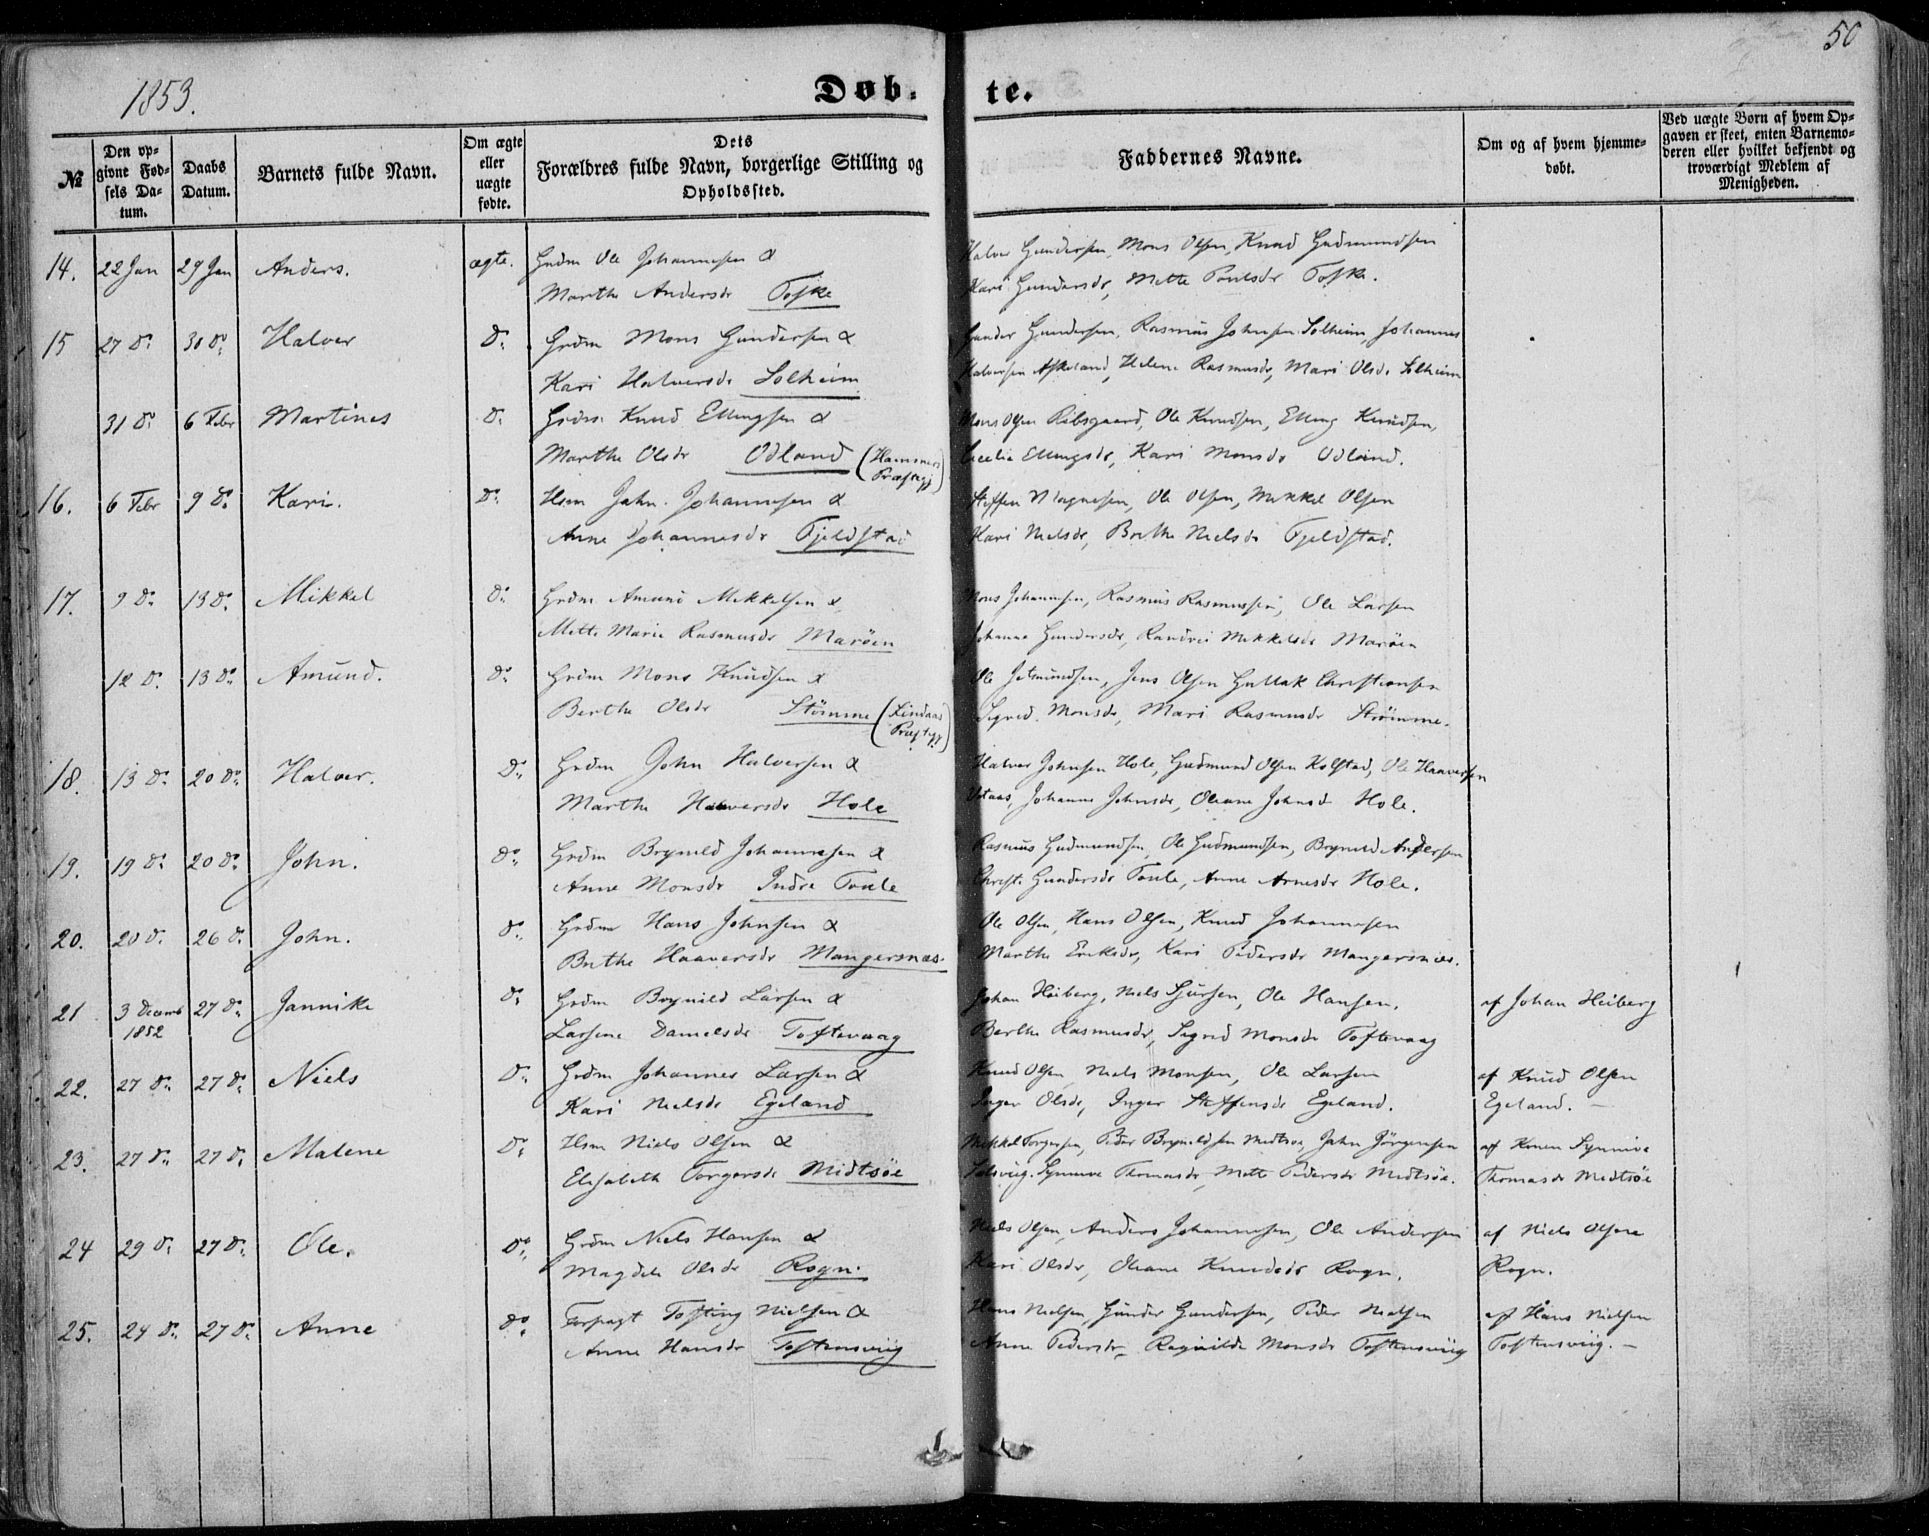 50
1853.
Døb- te.
№
Den op-
givne Fød-
sels Da-
tum.
Daabs
Datum.
Barnets fulde Navn.
Om ægte
eller
uægte
fødte.
Dets
Forældres fulde Navn, borgerlige Stilling og
Opholdssted.
Faddernes Navne.
Om og af hvem hjemme-
døbt.
Ved uægte Børn af hvem Op-
gaven er skeet, enten Barnemo-
deren eller hvilket bekjendt og
troværdigt Medlem af
Menigheden.
14. 22 Jan 29 Jan Anders. ægte. Grdm Ole Johannesen & Halvor Gundersen, Mons Olsen, Knud Gudmundsen
Marthe Andersdr Toske Kari Gundersdr, Mette Poulsdr Toske.
15 27 do 30 do Halver do Grdm Mons Gundersen & Gunder Gundersen, Rasmus Johnsen Solheim, Johannes
Kari Halversdr Solheim Halversen Askeland, Helene Rasmusdr, Mari Olsdr Solheim
31 do 6 Febr Martines do Grdm Knud Ellingsen & Mons Olsen Ribsgaard, Ole Knudsen, Elling Knudsen,
Marthe Olsdr Odland (Hammers Cecilia Ellingsdr, Kari Monsdr Odland.
Præstegj)
16. 6 Febr 9 do Kari. do Hsm John Johannesen & Steffen Magnesen, Ole Olsen, Mikkel Olsen
Anne Johannesdr Fjeldstad Kari Nielsdr, Berthe Nielsdr Fjeldstad.
17. 9 do 13 do Mikkel do Grdm Amund Mikkelsen & Mons Johannesen, Rasmus Rasmussen, Ole Larsen
Mette Marie Rasmusdr Marøen Johanne Gundersdr, Randvei Mikkelsdr Marøen
12 do 13 do Amund. do Grdm Mons Knudsen & Ole Jetmundsen, Jens Olsen Hullak Christiansen
Berthe Olsdr Stømme (Lindaas Sigrid Monsdr, Mari Rasmusdr Strømme.
Præstgj)
18. 13 do 20 do Halver. do Grdm John Halversen & Halver Johnsen Hole, Gudmund Olsen Kolstad, Ole Haaversen
Marthe Haaversdr Hole Johanne Johnsdr, Oleane Johnsdr Hole.
19. 19 do 20 do John. do Grdm Brynild Johannesen & Rasmus Gudmundsen, Ole Gudmundsen, Brynild Andersen
Anne Monsdr Indre Toule Christi Gundersdr Toule, Anne Arnesdr Hole.
20. 20 do 26 do John. do Grdm Hans Johnsen & Ole Olsen, Hans Olsen, Knud Johannesen
Berthe Haaversdr Mangersnæs. Marthe Eriksdr, Kari Pedersdr Mangersnæs.
21 3 Decmb 27 do Jannike do Grdm Brynild Larsen & Johan Heiberg, Niels Sjursen, Ole Hansen, af Johan Heiberg
1852 Larsene Danielsdr Toftevaag Berthe Rasmusdr, Sigrid Monsdr Toftevaag
22. 27 do 27 do Niels do Grdm Johannes Larsen & Knud Olsen, Niels Monsen, Ole Larsen af Knud Olsen
Kari Nielsdr Egeland Inger Olsdr, Inger Steffensdr Egeland. Egeland. –
23. 27 do 27 do Malene do Hsm Niels Olsen & Mikkel Torgersen, Peder Brynildsen Midtsøe, John Jörgensen af Konen Synnive
Elisabeth Torgersdr Midtsöe Solsviig. Synneve Thomasdr, Mette Pedersdr Midtsöe. Thomasdr Midtsöe
24 29 do 27 do Ole. do Grdm Niels Hansen & Niels Olsen, Anders Johannesen, Ole Andersen af Niels Olsen
Magdele Olsdr Rogn. Kari Olsdr, Oleane Knudsdr Rogn. Rogn.
25. 24 do 27 do Anne do Forpagt Tosting Nielsen & Hans Nielsen, Gunder Gundersen, Peder Nielsen af Hans Nielsen
Anne Hansdr Tostensviig Anne Pedersdr, Ragnilde Monsdr Tostensviig Tostensviig. –